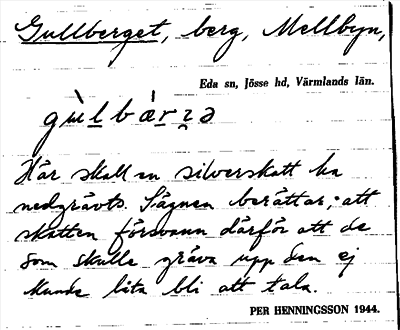 Gullberget, berg, Mellbyn,
Eda sn, Jösse hd, Värmlands län.
gùlbárʐə
Här skall en silverskatt ha
nedgrävts. Sägnen berättar, att
skatten försvann därför att de
som skulle gräva upp den ej
kunde låta bli att tala.
PER HENNINGSSON 1944.